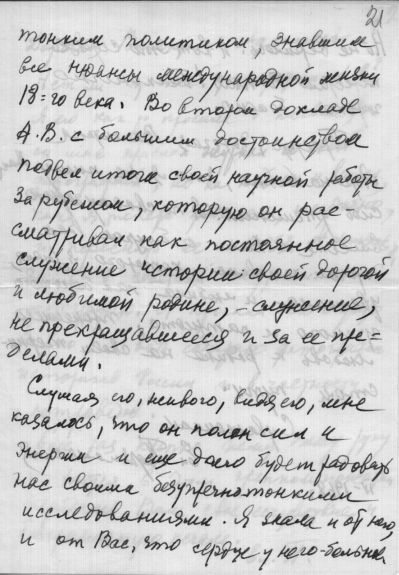 21
тонким политиком, знавшим
все нюансы международной жизни
18-го века. Во втором докладе
А.В. с большим достоинством
подвел итоги своей научной работы
за рубежом, которую он рас-
сматривал как постоянное
служение истории своей дорогой
и любимой родине, – служение,
не прекращавшееся и за ее пре-
делами.
Слушая его, живого, видя его, мне
казалось, что он полон сил и
энергии и еще долго будет радовать
нас своими безупречно тонкими
исследованиями. Я знала и от него,
и от Вас, что сердце у него – больное